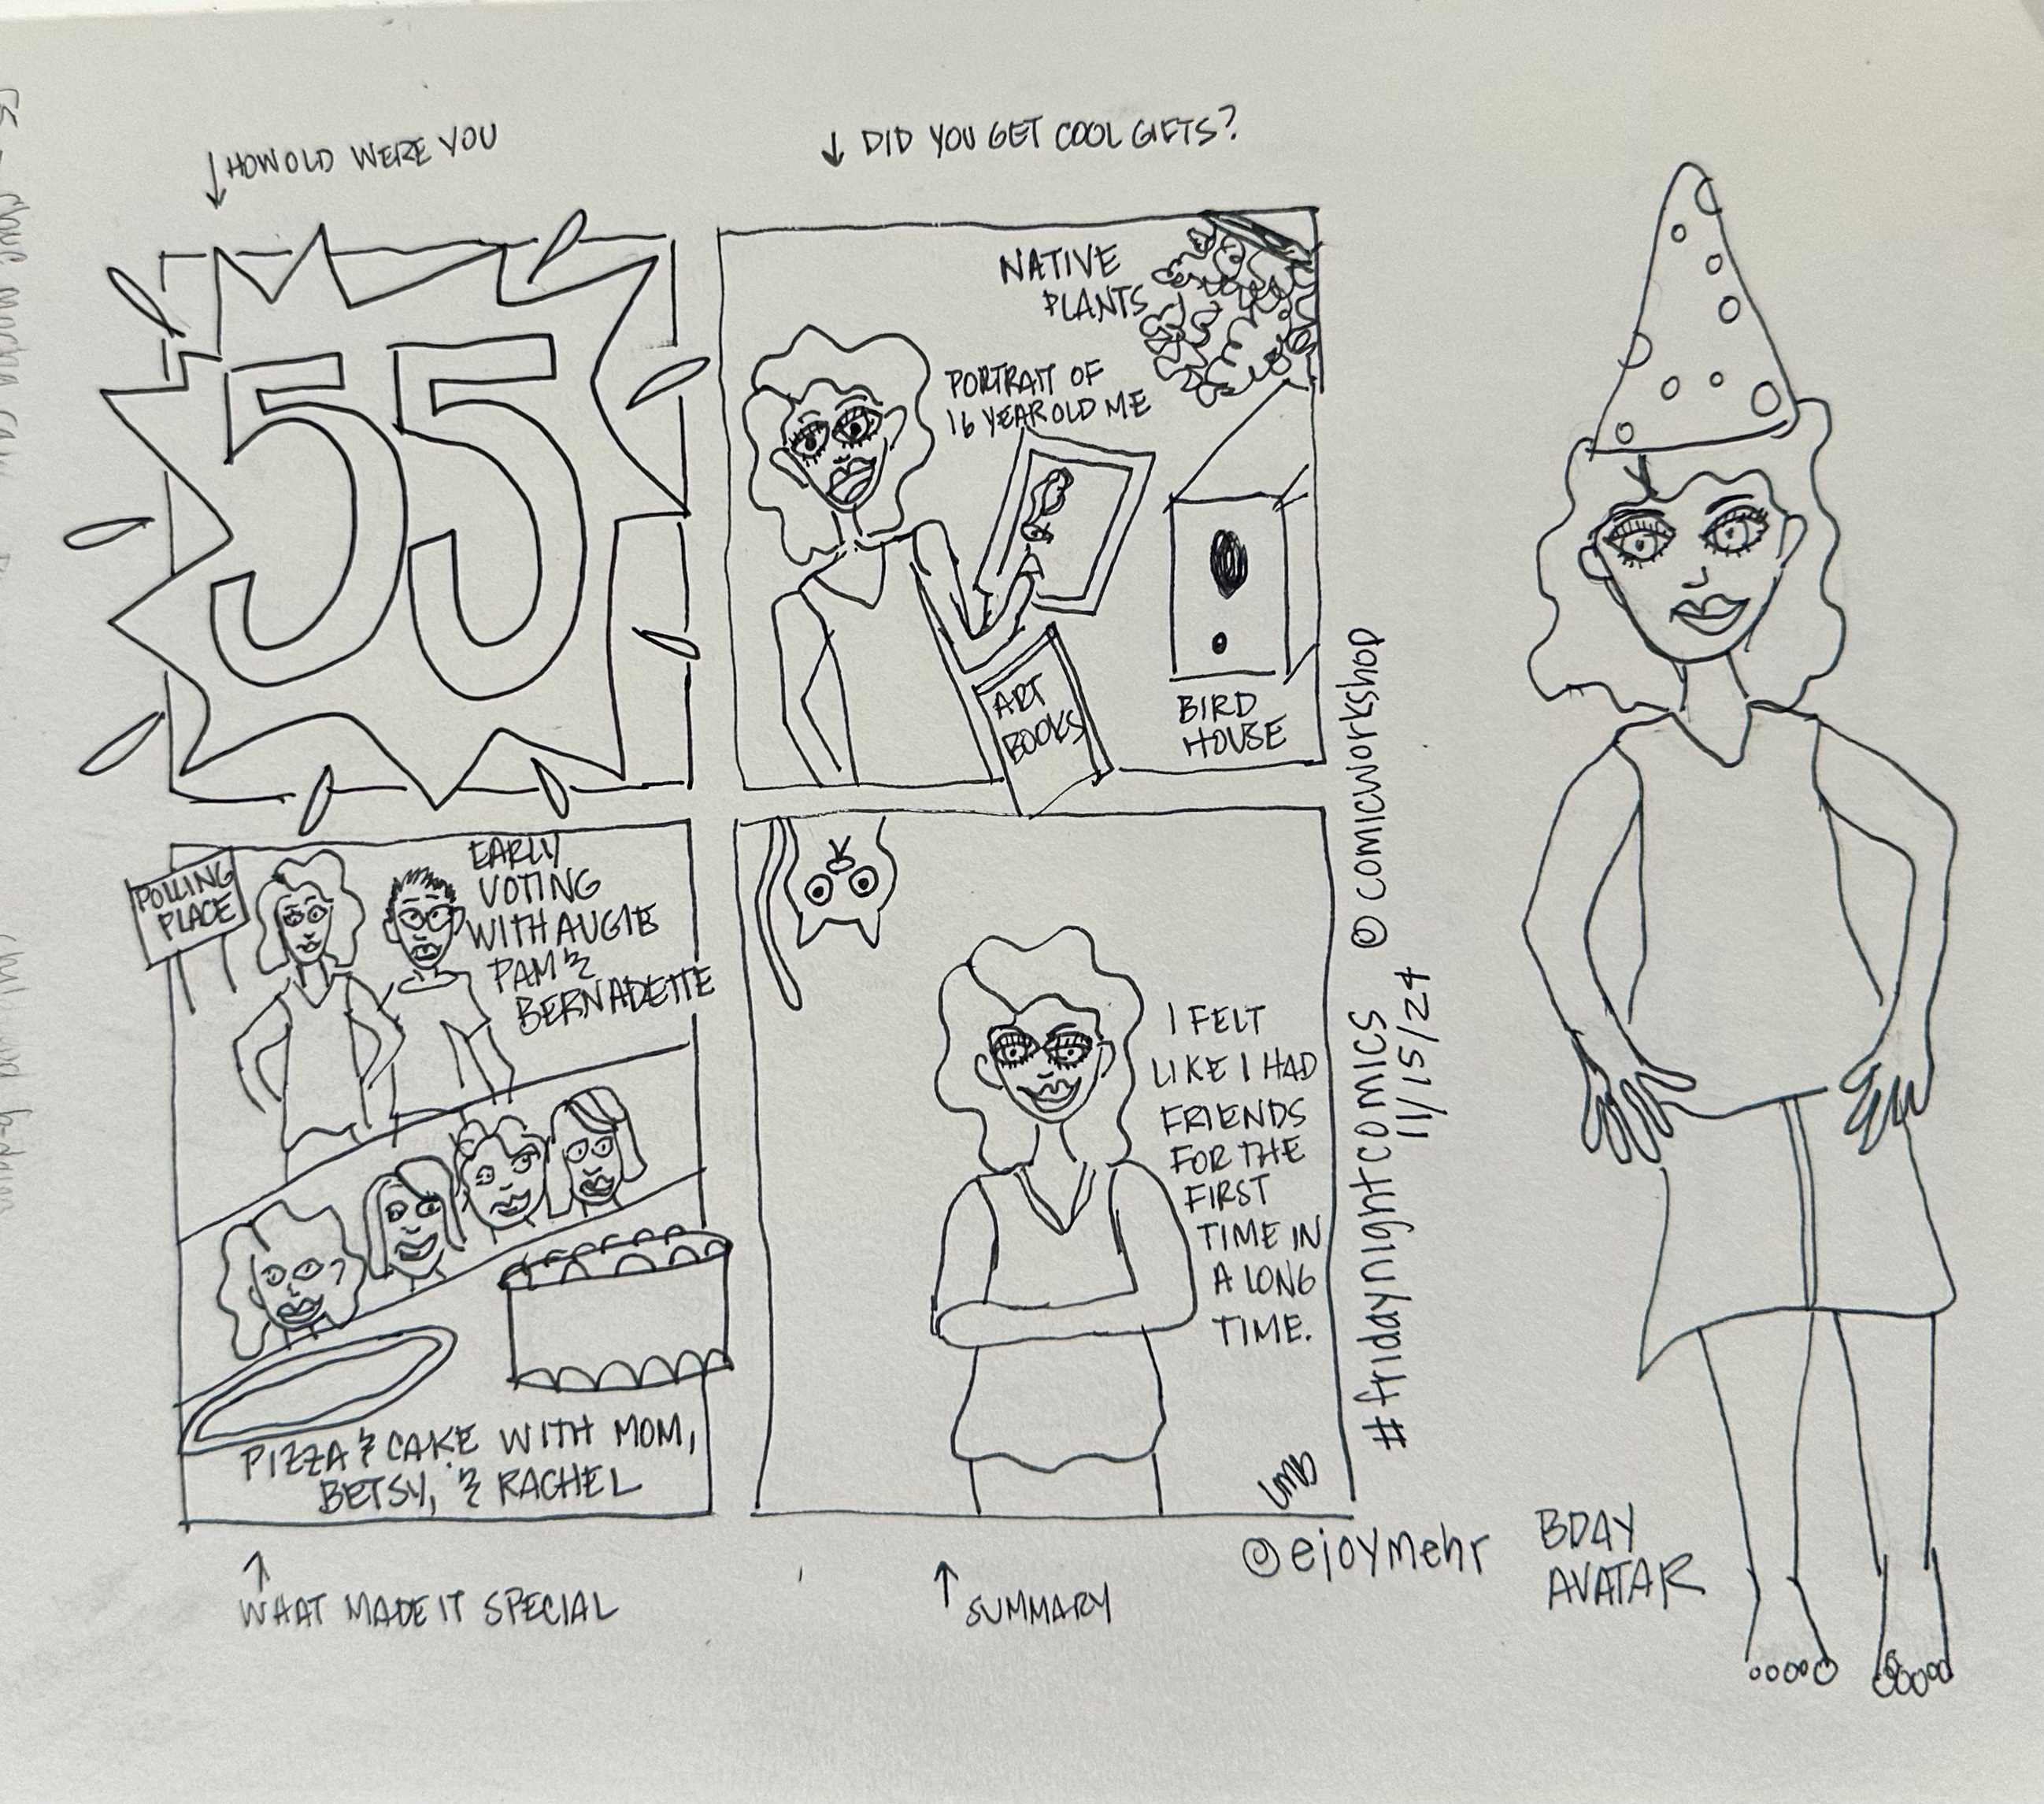 HOW OLD WERE YOU
DID YOU GET COOL GIFTS?
55
NATIVE
PLANTS
PORTRAIT OF
16 YEAR OLD ME
ART
BOOKS
BIRD
HOUSE
POLLING
PLACE
EARLY
VOTING
WITH AUGIE
PAM &
BERNADETTE
PIZZA & CAKE WITH MOM,
BETSY, & RACHEL
I FELT
LIKE I HAD
FRIENDS
FOR THE
FIRST
TIME IN
A LONG
TIME.
WHAT MADE IT SPECIAL
SUMMARY
@ejoymehr
#fridaynightcomics @comicworkshop
11/15/24
BDAY
AVATAR